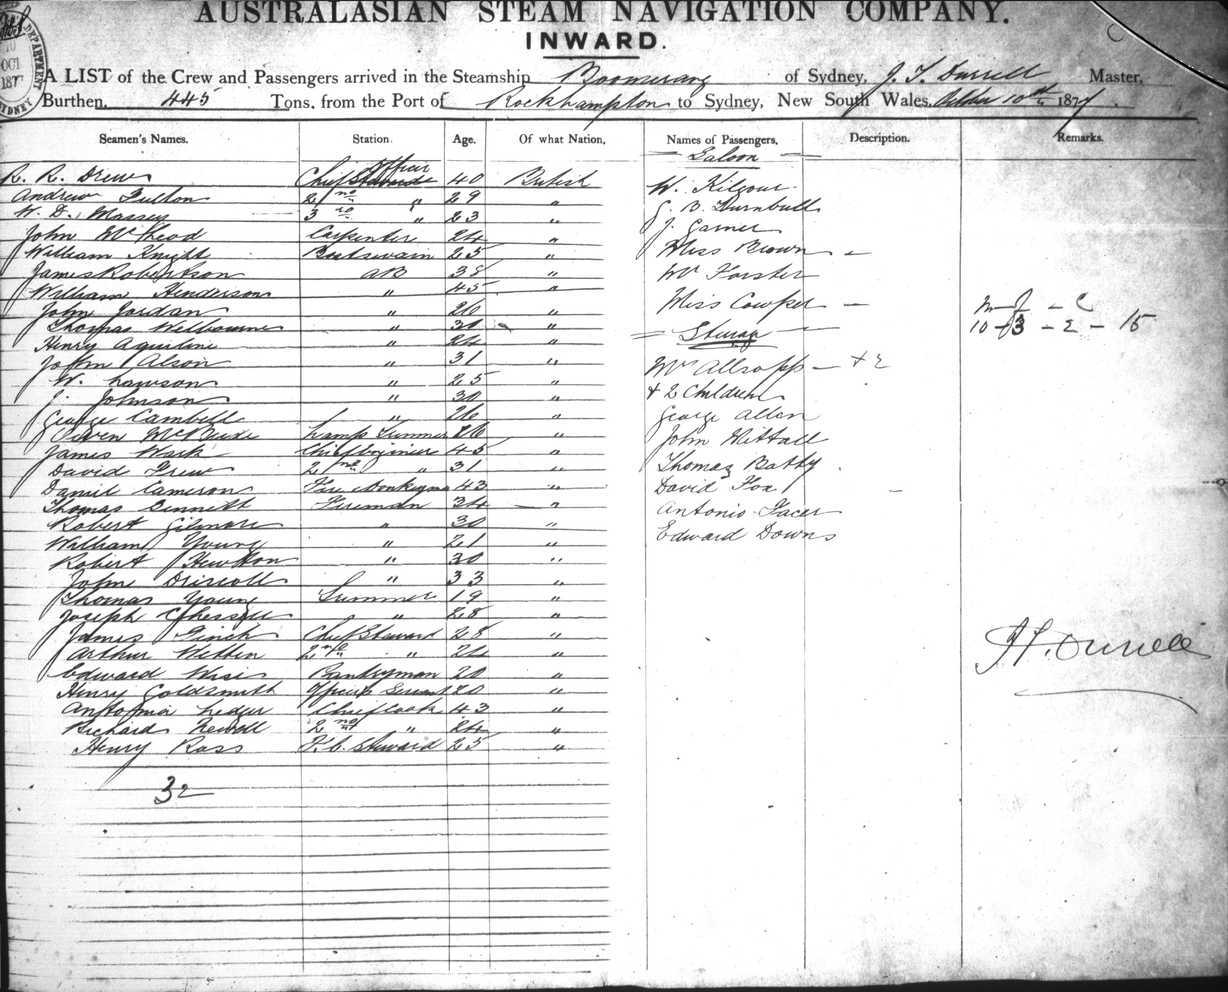 AUSTRALASIAN STEAM NAVIGATION COMPANY.
INWARD.
A LIST of the Crew and Passengers arrived in the Steamship Boomerang of Sydney, J. T. Durrell Master,
Burthen, 445 Tons, from the Port of Rockhampton to Sydney, New South Wales, October 10th 1877
Seamen's Names. Station. Age. Of what Nation, Names of Passengers, Description. Remarks.
R. R. Drew Chief Officer 40 British
Andrew Fulton 2nd " 29 "
W. D. Massey 3 " 23 "
John Carpenter 24 "
William Knight 25 "
James Robertson AB 38 "
William Henderson " 45 "
John Jordan " 26 "
Thomas Welbourne " 30 "
Henry " 24 "
John Alson " 31 "
W. Lawson " 25 "
J. Johnson " 30 "
George Cambell " 26 "
Owen McBride Lamp 26 "
James Wark Chief Engineer 45 "
David Frew 2nd " 31 "
Daniel Cameron 43 "
Thomas Sennett Fireman 34 "
Robert Gilmore " 30 "
William Young " 21 "
Robert " 30 "
John Driscoll " 33 "
Thomas Young 19 "
Joseph " 28 "
James Finch Chief Steward 28 "
Arthur Witten 2nd " 24 "
Edward Wise Pantryman 20 "
Henry Goldsmith Officers Servant 20 "
Ledger Chief Cook 43 "
Richard Newell 2nd " 24 "
Henry Ross F. C. Steward 25 "
32
Saloon
W. Kilgour
G. B. Turnbull
J. Garner
Miss Brown
Mr Forster
Miss Cowper
Steerage
Mrs Allsopp
+ 2 Children
George Allen
John Wittall
Thomas Batty
David Fox
Antonio
Edward Downs
10 + 3 - 2 - 15
J. T. Durrell